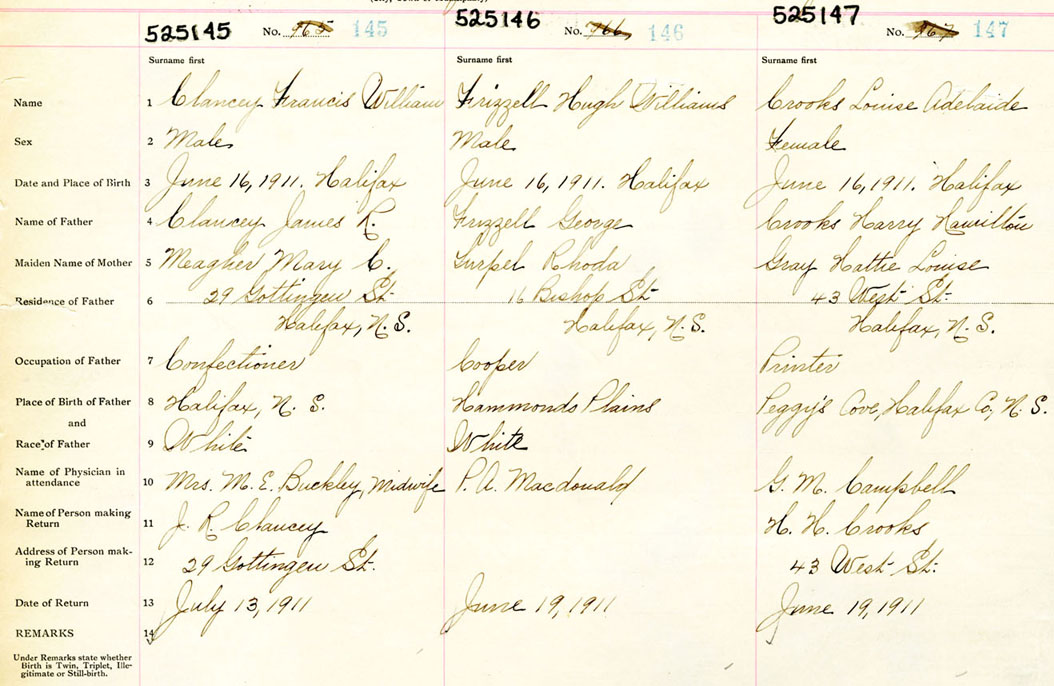 525145 No. 965 145 525146 No. 966 146 525147 No. 967 147
Surname first Surname first Surname first
Name 1 Clancey Francis William Frizzell Hugh Williams Crooks Louise Adelaide
Sex 2 Male Male Female
Date and Place of Birth 3 June 16, 1911. Halifax June 16, 1911. Halifax June 16, 1911. Halifax
Name of Father 4 Clancey James R. Frizzell George Crooks Harry Hamilton
Maiden Name of Mother 5 Meagher Mary C. Rhoda Gray Hattie Louise
Residence of Father 6 29 Gottingen St. 16 Bishop St. 43 West St.
Halifax, N.S. Halifax, N.S. Halifax, N.S.
Occupation of Father 7 Confectioner Cooper Printer
Place of Birth of Father 8 Halifax, N.S. Hammonds Plains Peggy's Cove, Halifax Co, N.S.
and
Race of Father 9 White White
Name of Physician in
attendance 10 Mrs. M. E. Buckley, Midwife P. A. Macdonald G. M. Campbell
Name of Person making
Return 11 J. R. Clancey H. H. Crooks
Address of Person mak-
ing Return 12 29 Gottingen St. 43 West St.
Date of Return 13 July 13, 1911 June 19, 1911 June 19, 1911
REMARKS 14
Under Remarks state whether
Birth is Twin, Triplet, Ille-
gitimate or Still-birth.